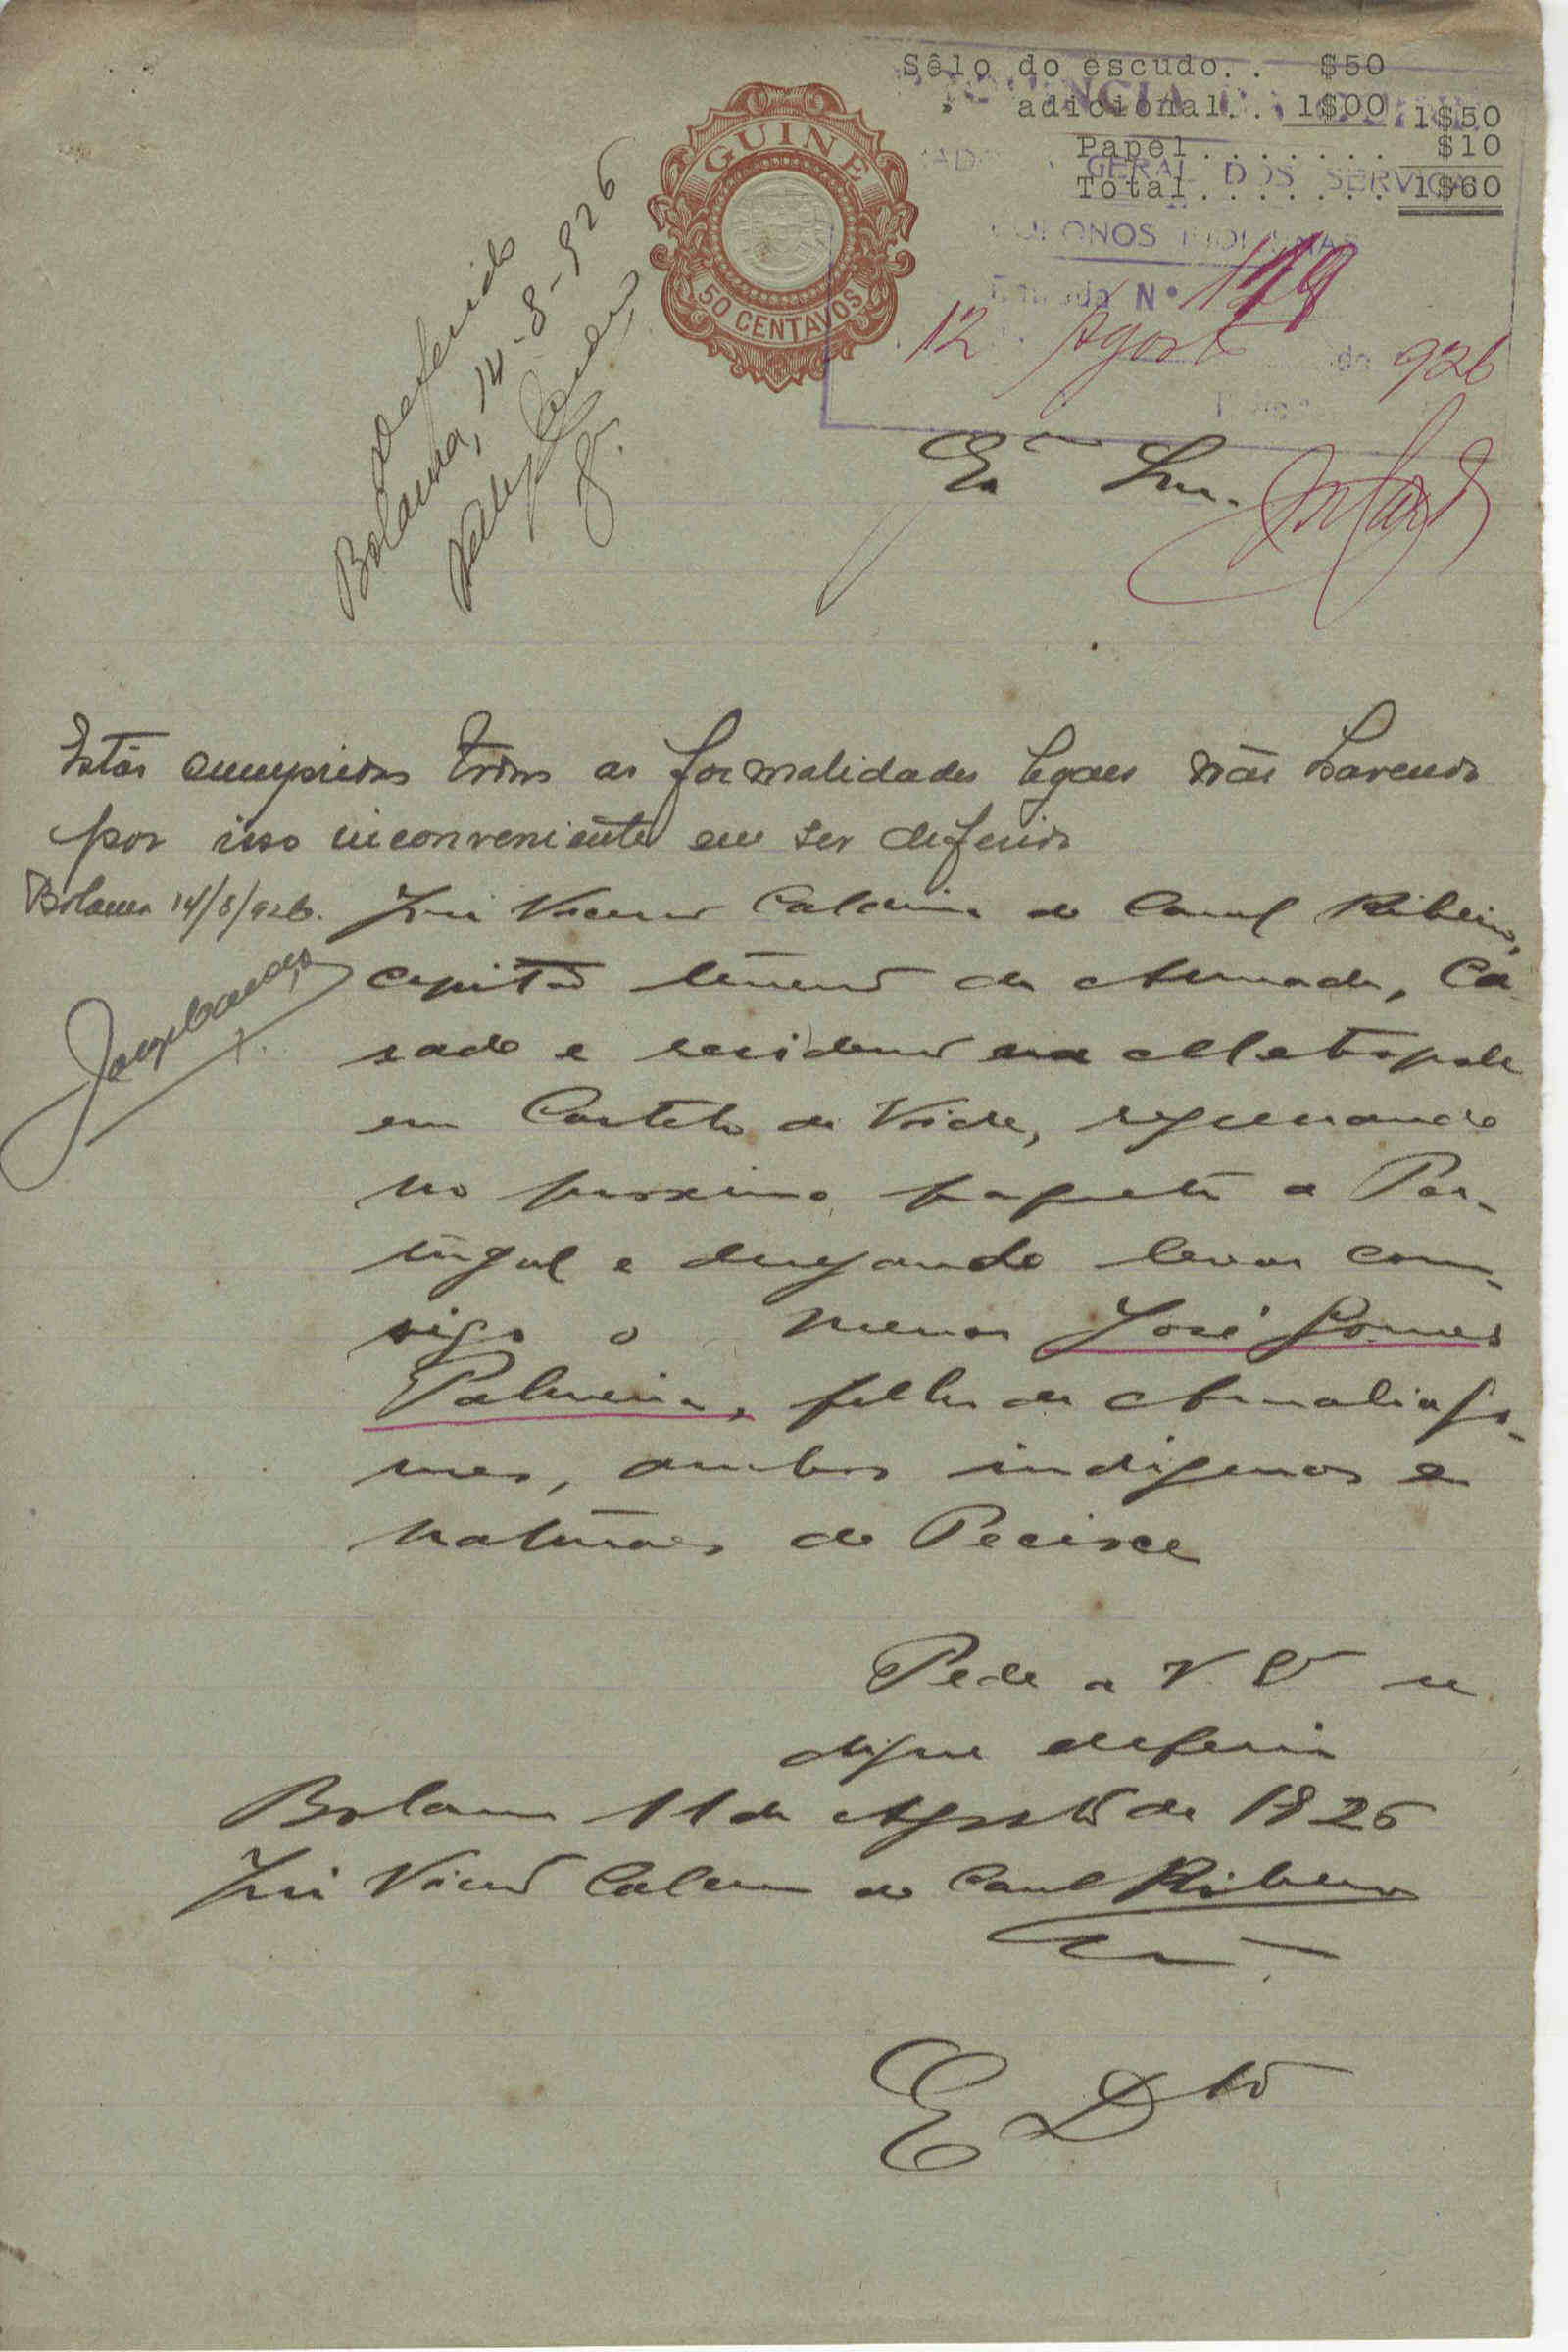 Sêlo do escudo.. $50
" adicional.. 1$00 1$50
Papel........ $10
Total........ 1$60
GUINE
50 CENTAVOS
PROVINCIA DA
GERAL DOS SERVIÇOS
COLONOS INDIGENAS
Entrada Nº 179
12 Agosto de 926
Deferido
Bolama, 14-8-926
Exmo Snr.
Estão cumpridas todas as formalidades legaes não havendo
por isso inconveniente em ser deferido
Bolama 14/8/926.
José Vicente Caldeira do Casal Ribeiro,
capitão tenente da Armada, ca
sado e residente na Metropole
em Castelo de Vide, regressando
no proximo paquete a Por-
tugal e desejando levar com-
sigo o menor José Gomes
Palmeira, filho de Amalia Go-
mes, ambos indigenas e
naturaes de Pecixe
Pede a V. Exª se
digne deferir
Bolama 11 de Agosto de 1926
José Vicente Caldeira do Casal Ribeiro
E Dto